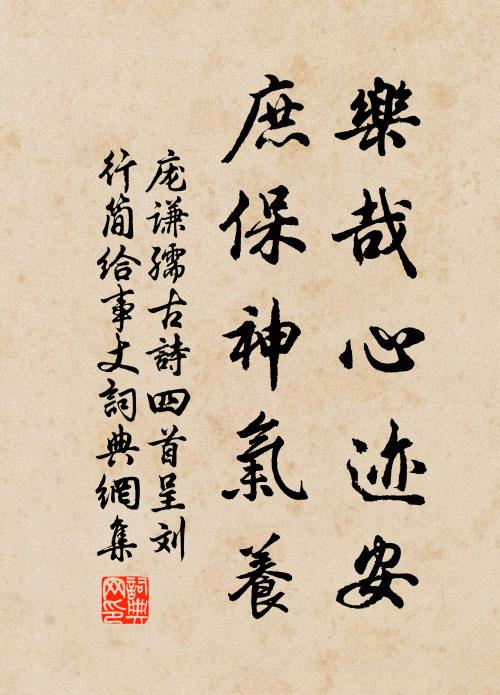 樂哉心迹安
庶保神氣養
庞谦孺古詩四首呈刘
行简给事丈詞典網集
詞典網印